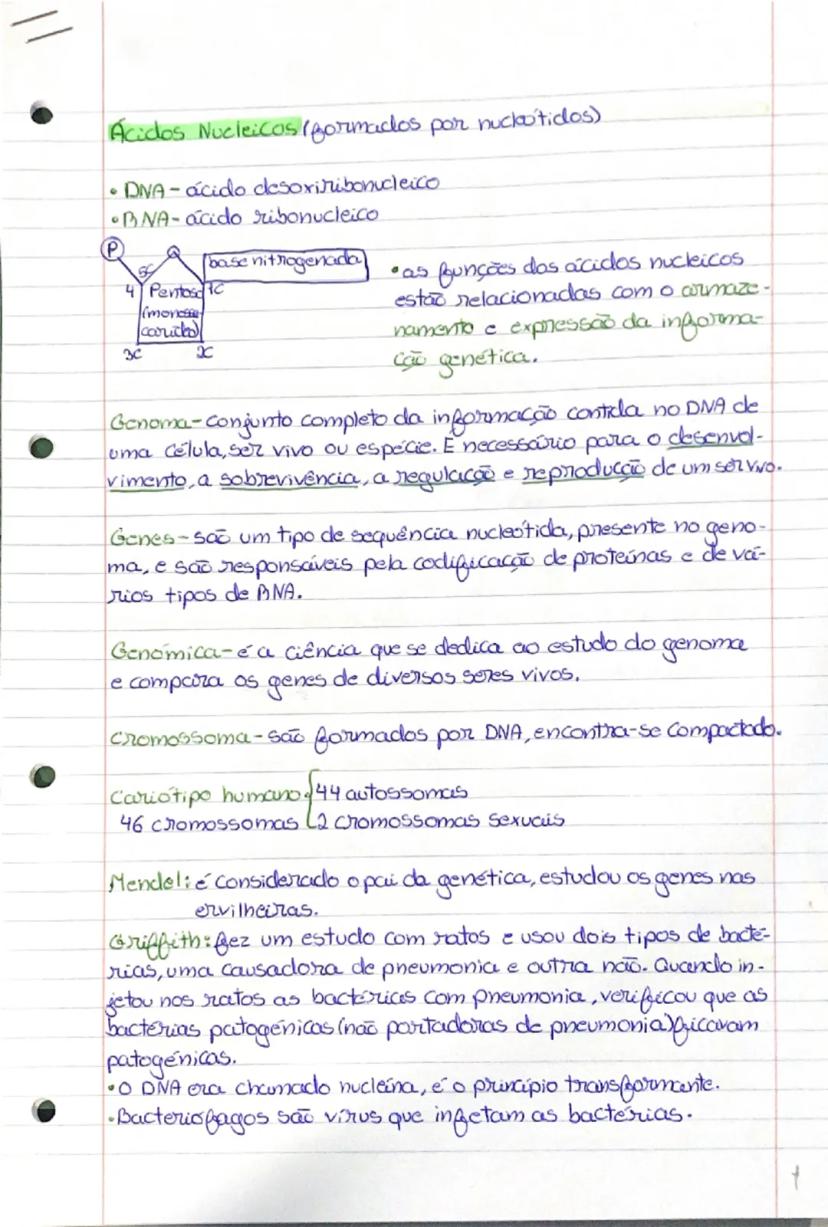 Ácidos Nucleicos (formados por nucleótidos)
• DNA - ácido desoxirribonucleico
• RNA - ácido ribonucleico
P
O
base nitrogenada
5C
4 Pentose 1C
(monossa-
carido)
3C 2C
• as funções dos ácidos nucleicos
estão relacionadas com o armaze-
namento e expressão da informa-
ção genética.
Genoma - conjunto completo da informação contida no DNA de
uma célula, ser vivo ou espécie. É necessário para o desenvol-
vimento, a sobrevivência, a regulação e reprodução de um ser vivo.
Genes - são um tipo de sequência nucleótida, presente no geno-
ma, e são responsáveis pela codificação de proteínas e de vá-
rios tipos de RNA.
Genómica - é a ciência que se dedica ao estudo do genoma
e compara os genes de diversos seres vivos.
Cromossoma - são formados por DNA, encontra-se compactado.
Cariótipo humano { 44 autossomas
46 cromossomas { 2 cromossomas sexuais
Mendel: é considerado o pai da genética, estudou os genes nas
ervilheiras.
Griffith: fez um estudo com ratos e usou dois tipos de bacté-
rias, uma causadora de pneumonia e outra não. Quando in-
jetou nos ratos as bactérias com pneumonia, verificou que as
bactérias patogénicas (não portadoras de pneumonia) ficavam
patogénicas.
• O DNA era chamado nucleína, é o princípio transformante.
• Bacteriófagos são vírus que infetam as bactérias.
1